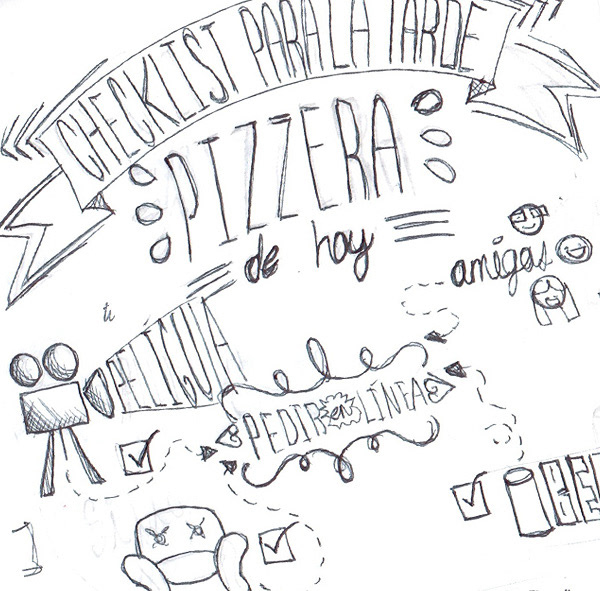 CHECKLIST PARA LA TARDE
PIZZERA
de hoy
amigas
tu
PELICULA
PEDIR en LÍNEA
BE